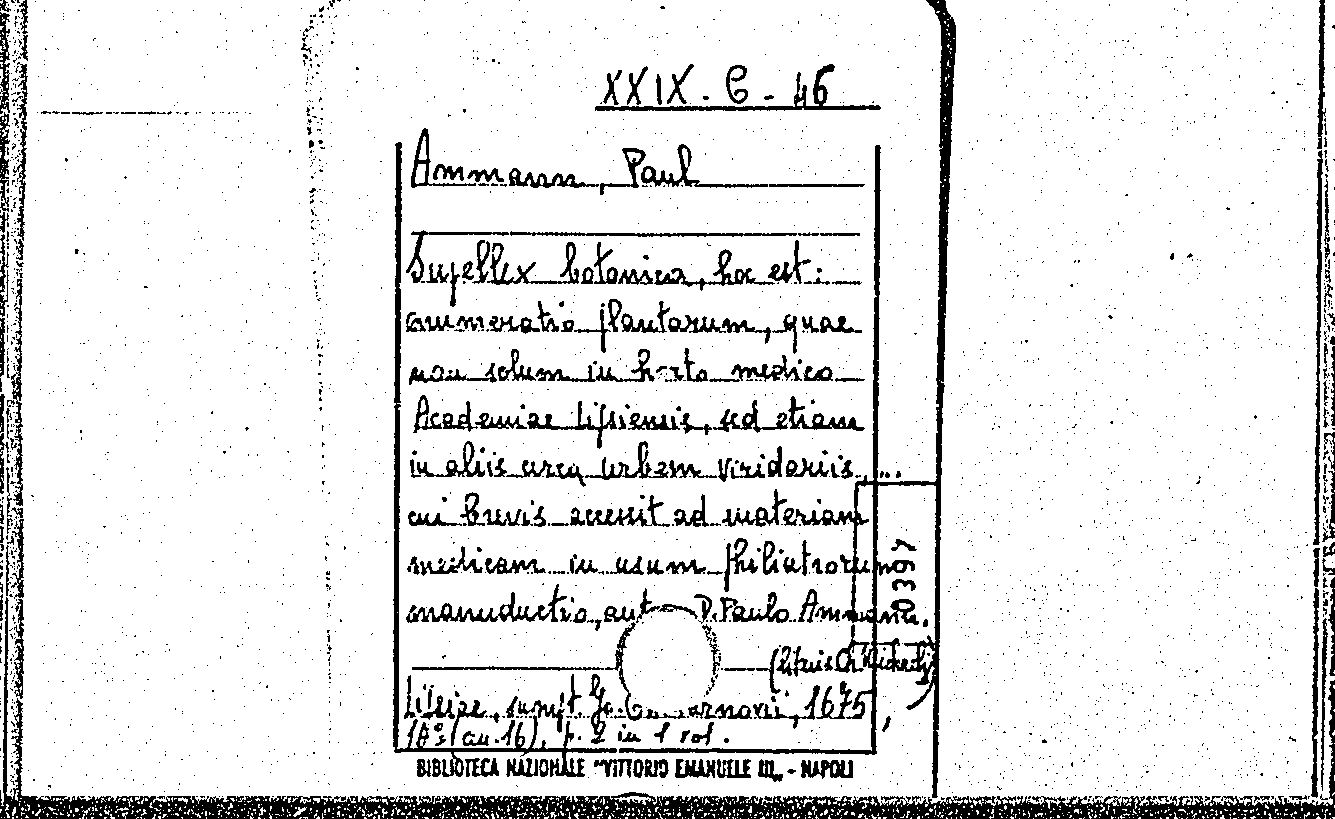 XXIX. C - 46
Ammann, Paul
Supellex botanica, hoc est:
enumeratio plantarum, quae
non solum in horto medico
Academiae Lipsiensis, sed etiam
in aliis circa urbem viridariis, ...
cui brevis accessit ad materiam
medicam in usum philiatrorum
manuductio, aut D. Paulo Ammann.
Lipsiae, sumpt. Jo. 1675,
18° (cm. 16), p. 2 in 1 vol.
BIBLIOTECA NAZIONALE "VITTORIO EMANUELE III" - NAPOLI